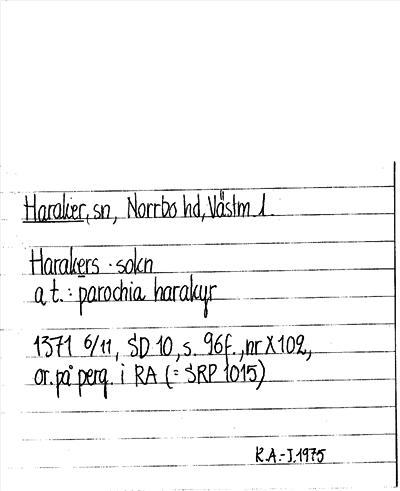 Haraker, sn, Norrbo hd, Västm l.
Harakers sokn
a t.: parochia harakyr
1371 6/11, SD 10, s. 96f., nr X102,
or. på perg. i RA (= SRP 1015)
R.A.-J. 1975